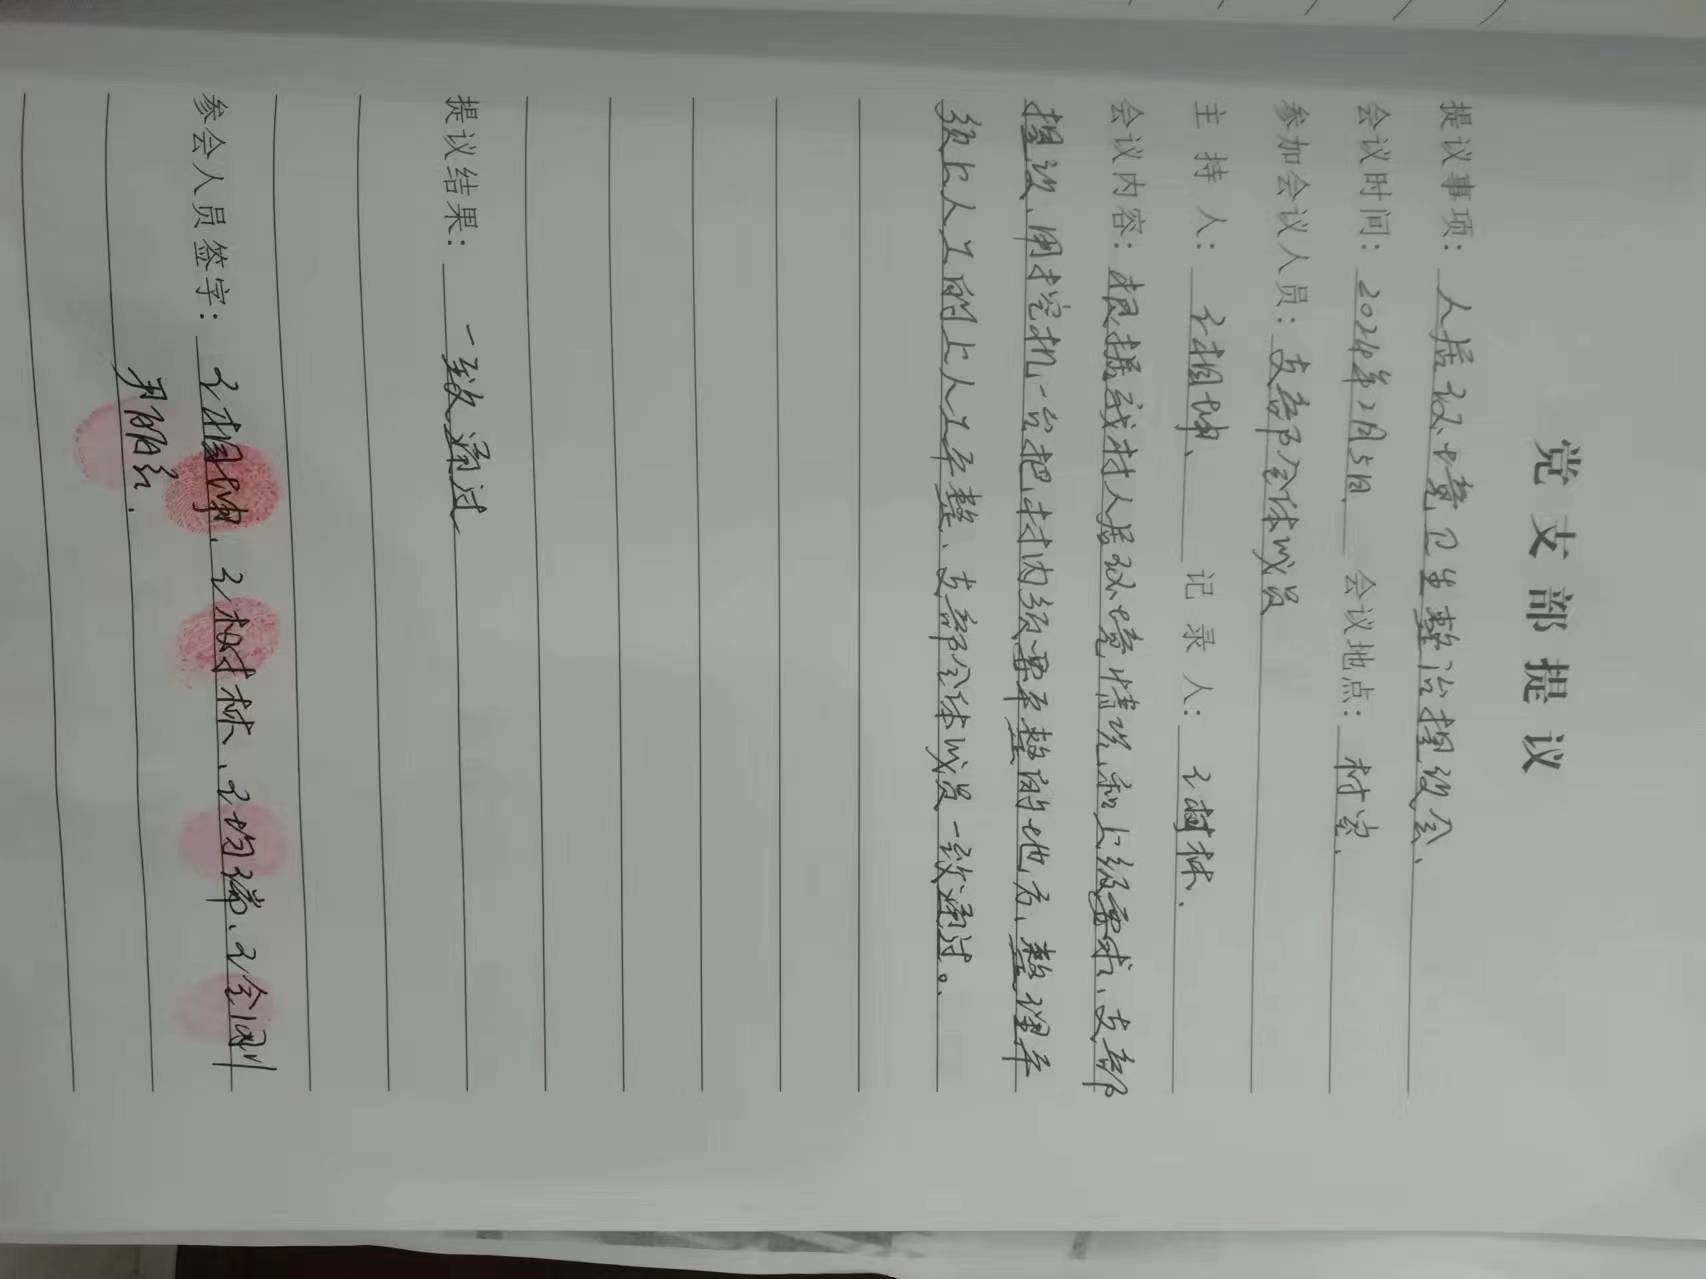 党支部提议
提议事项：人居环境卫生整治提议会、
会议时间：2024年2月5日 会议地点：村室、
参加会议人员：支部全体成员
主持人：王相坤、 记录人：王树林、
会议内容：根据我村人居环境情况和上级要求、支部
提议、用挖机一台把村内须要平整的地方、整理平
须上人工的上人工平整、支部全体成员一致通过。
提议结果：一致通过
参会人员签字：王相坤、王树林、王均瑞、王全刚
尹丽